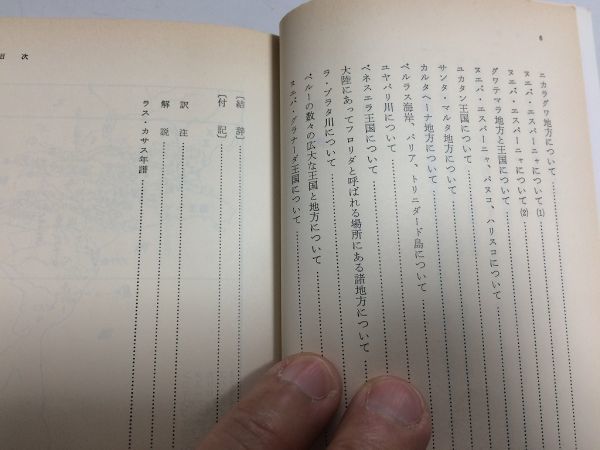 6
ニカラグワ地方について
ヌエバ・エスパーニャについて(1)
ヌエバ・エスパーニャについて(2)
グワテマラ地方と王国について
ヌエバ・エスパーニャ、パヌコ、ハリスコについて
ユカタン王国について
サンタ・マルタ地方について
カルタヘーナ地方について
ペルラス海岸、パリア、トリニダード島について
ユヤパリ川について
ベネスエラ王国について
大陸にあってフロリダと呼ばれる場所にある諸地方について
ラ・プラタ川について
ペルーの数々の広大な王国と地方について
ヌエバ・グラナーダ王国について
目次
〔結辞〕
〔付記〕
訳注
解説
ラス・カサス年譜